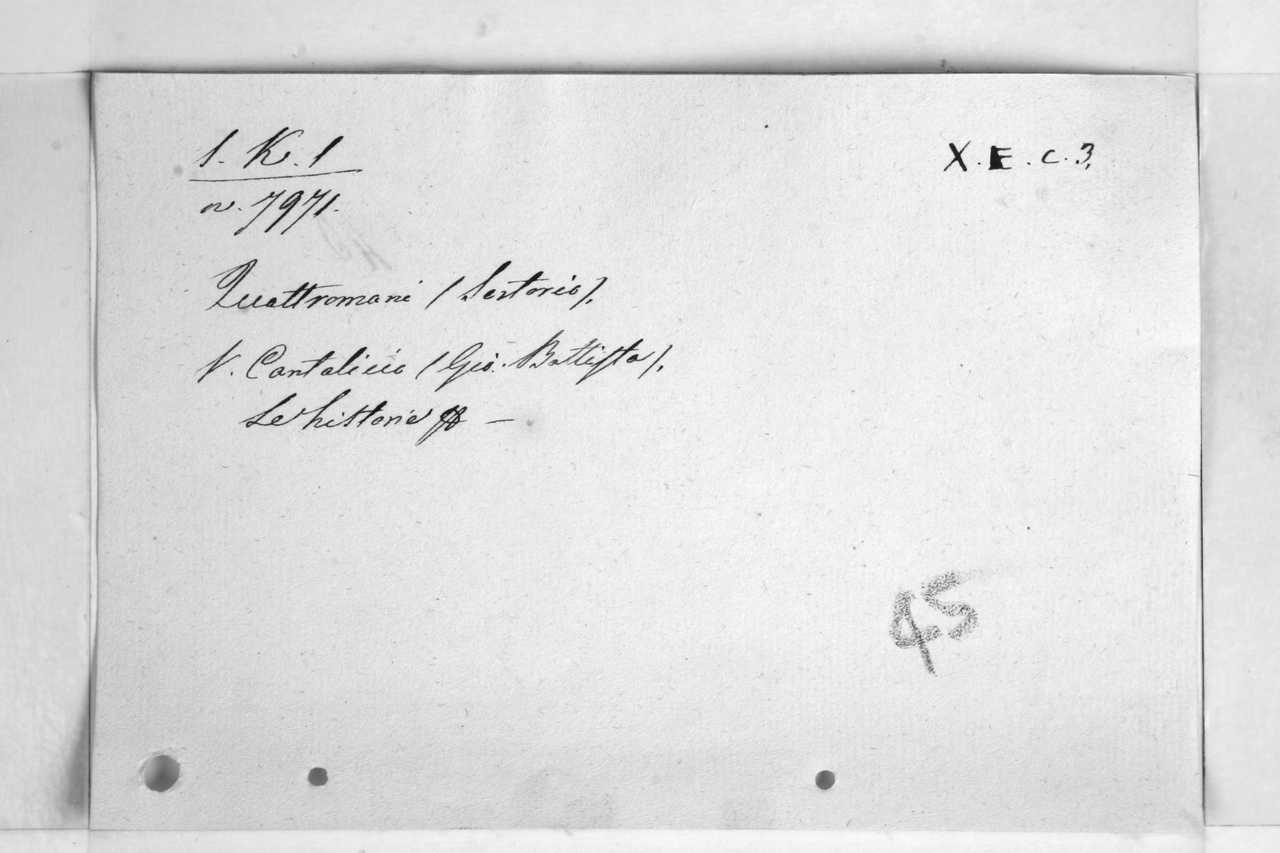 1. K. 1
n. 7971.
X. E. c. 3,
Quattromani (Sertorio),
V. Cantalicio (Gio. Battista),
Le historie —
45